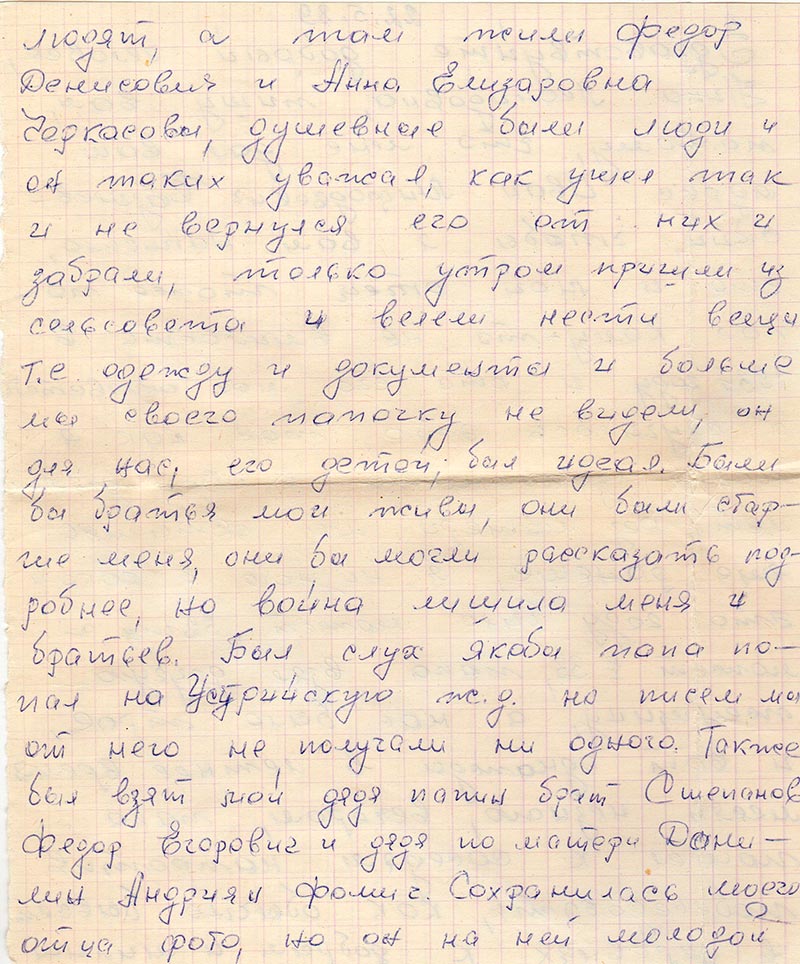 людят, а там жили Федор
Денисович и Анна Елизаровна
Черкасовы, душевные были люди и
он таких уважал, как ушел так
и не вернулся его от них и
забрали, только утром пришли из
сельсовета и велели нести вещи
т.е. одежду и документы и больше
мы своего папочку не видели, он
для нас, его детей, был идеал. Были
бы братья мои живы, они были стар-
ше меня, они бы могли рассказать под-
робнее, но война лишила меня и
братьев. Был слух якобы папа по-
пал на Уссурийскую ж.д. но писем мы
от него не получали ни одного. Также
был взят мой дядя папин брат Степанов
Федор Егорович и дядя по матери Дани-
лин Андриян Фомич. Сохранилась моего
отца фото, но он на ней молодой